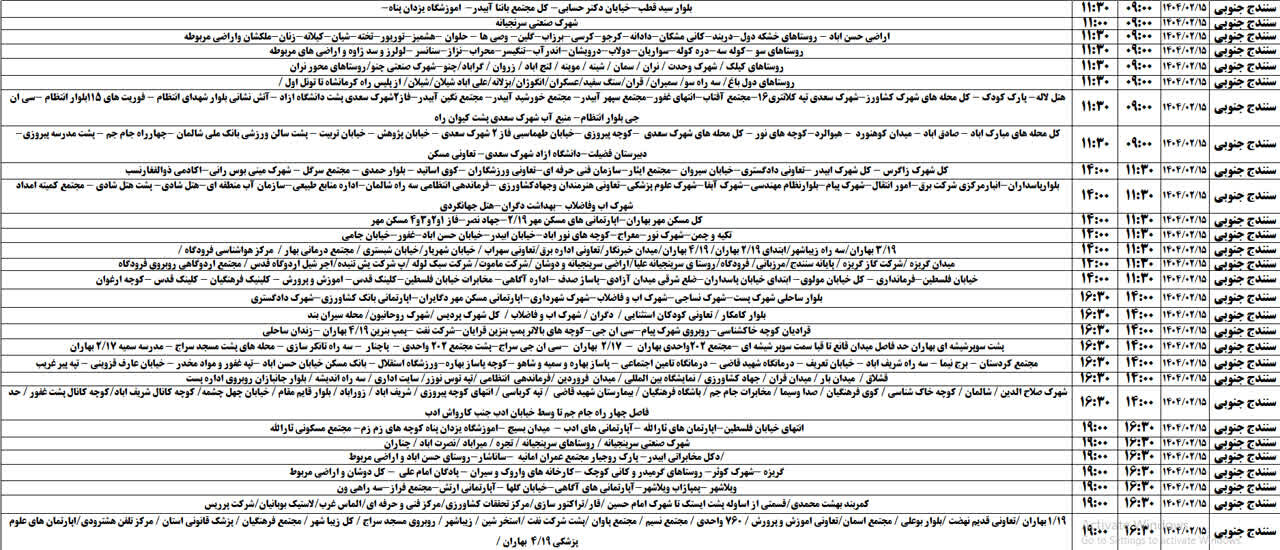 سنندج جنوبی ۱۴۰۴/۰۲/۱۵ ۰۹:۰۰ ۱۱:۳۰ بلوار سید قطب–خیابان دکتر حسابی– کل مجتمع بانتا آبیدر– اموزشگاه یزدان پناه–
سنندج جنوبی ۱۴۰۴/۰۲/۱۵ ۰۹:۰۰ ۱۱:۰۰ شهرک صنعتی سرنجیانه
سنندج جنوبی ۱۴۰۴/۰۲/۱۵ ۰۹:۰۰ ۱۱:۳۰ اراضی حسن اباد – روستاهای خشکه دول–دربند–کانی مشکان–دادانه–کرجو–کرسی–برزاب–گلین–وصی ها – حلوان –هشمیز–توریور–تخته–شیان–کیلانه–زنان–ملکشان واراضی مربوطه
سنندج جنوبی ۱۴۰۴/۰۲/۱۵ ۰۹:۰۰ ۱۱:۳۰ روستاهای سو–کوله سه–دره کوله–سواریان–دولاب–درویشان–اندر آب–تنگیسر–محراب–نزاز–ستانسر–لولرز و سد ژاوه و اراضی های مربوطه
سنندج جنوبی ۱۴۰۴/۰۲/۱۵ ۰۹:۰۰ ۱۱:۳۰ روستاهای کیلک / شهرک وحدت / نران / سمان / شینه / موینه / لنج اباد / زروان / کراباد/چنو–شهرک صنعتی چنو/روستاهای محور نران
سنندج جنوبی ۱۴۰۴/۰۲/۱۵ ۰۹:۰۰ ۱۱:۳۰ روستاهای دول باغ/ سه راه سو/ سمیران/ قران/سنگ سفید/عسکران/انگوزان/بزلانه/علی اباد شیلان/شیلان/ از پلیس راه کرمانشاه تا تونل اول /
سنندج جنوبی ۱۴۰۴/۰۲/۱۵ ۰۹:۰۰ ۱۱:۳۰ هتل لاله– پارک کودک – کل محله های شهرک کشاورز–شهرک سعدی تپه کلانتری۱۶–مجتمع آفتاب–انتهای غفور–مجتمع سپهر آبیدر– مجتمع خورشید آبیدر– مجتمع نگین آبیدر–فاز۲شهرک سعدی پشت دانشگاه ازاد – آتش نشانی بلوار شهدای انتظام – فوریت های ۱۱۵بلوار انتظام –سی ان
جی بلوار انتظام– منبع آب شهرک سعدی پشت کیوان راه
سنندج جنوبی ۱۴۰۴/۰۲/۱۵ ۰۹:۰۰ ۱۱:۳۰ کل محله های مبارک اباد – صادق اباد – میدان کوهنورد – هیوالرد–کوچه های نور – کل محله های شهرک سعدی –کوچه پیروزی–خیابان طهماسبی فاز ۲ شهرک سعدی – خیابان پژوهش – خیابان تربیت – پشت سالن ورزشی بانک ملی شالمان –چهارراه جام جم – پشت مدرسه پیروزی–
دبیرستان فضیلت–دانشگاه ازاد شهرک سعدی– تعاونی مسکن
سنندج جنوبی ۱۴۰۴/۰۲/۱۵ ۱۱:۳۰ ۱۴:۰۰ کل شهرک زاگرس – کل شهرک ابیدر –تعاونی دادگستری–خیابان سیروان –مجتمع ایثار–سازمان فنی حرفه ای–تعاونی ورزشگاران –کوی اساتید – بلوار حمدی – مجتمع سرگل – شهرک مینی بوس رانی–اکادمی ذوالفقارنسب
سنندج جنوبی ۱۴۰۴/۰۲/۱۵ ۱۱:۳۰ ۱۴:۰۰ بلوارپاسداران–انبارمرکزی شرکت برق–امور انتقال–شهرک پیام–بلوارنظام مهندسی–شهرک آبفا–شهرک علوم پزشکی–تعاونی هنرمندان وجهادکشاورزی –فرماندهی انتظامی سه راه شالمان–اداره منابع طبیعی–سازمان آب منطقه ای–هتل شادی– پشت هتل شادی – مجتمع کمیته امداد
شهرک اب وفاضلاب –بهداشت دگران–هتل جهانگردی
سنندج جنوبی ۱۴۰۴/۰۲/۱۵ ۱۱:۳۰ ۱۴:۰۰ کل مسکن مهر بهاران–اپارتمانی های مسکن مهر ۲/۱۹–جهاد نصر–فاز ۱و۲و۳و۴ مسکن مهر
سنندج جنوبی ۱۴۰۴/۰۲/۱۵ ۱۱:۳۰ ۱۴:۰۰ تکیه و چمن–شهرک نور–معراج–کوچه های نور اباد–خیابان ابیدر–خیابان حسن اباد–غفور–خیابان جامی
سنندج جنوبی ۱۴۰۴/۰۲/۱۵ ۱۱:۳۰ ۱۴:۰۰ ۳/۱۹ بهاران/سه راه زیباشهر/ابتدای ۲/۱۹ بهاران/ ۴/۱۹ بهاران/میدان خبرنگار/تعاونی اداره برق/تعاونی سهراب / خیابان شهریار/خیابان شبستری / مجتمع درمانی بهار / مرکز هواشناسی فرودگاه /
سنندج جنوبی ۱۴۰۴/۰۲/۱۵ ۱۱:۳۰ ۱۳:۰۰ میدان گریزه /شرکت گاز گریزه / پایانه سنندج/مرزبانی/ فرودگاه/روستا ی سرنجیانه علیا/اراضی سرنجیانه و دوشان /شرکت ماموت/ شرکت سبک لوله /پ شرکت پش تنیده/اجر شیل اردوگاه قدس / مجتمع اردوگاهی روبروی فرودگاه
سنندج جنوبی ۱۴۰۴/۰۲/۱۵ ۱۱:۳۰ ۱۴:۰۰ خیابان فلسطین–فرمانداری – کل خیابان مولوی – ابتدای خیابان پاسداران–ضلع شرقی میدان آزادی–پاساژ صدف –اداره آگاهی– مخابرات خیابان فلسطین–کلینک قدس– اموزش و پرورش – کلینیک فرهنگیان – کلینک قدس –کوچه ارغوان
سنندج جنوبی ۱۴۰۴/۰۲/۱۵ ۱۴:۰۰ ۱۶:۳۰ بلوار ساحلی شهرک پست–شهرک نساجی–شهرک اب و فاضلاب–شهرک شهرداری–اپارتمانی مسکن مهر دگایران–اپارتمانی بانک کشاورزی–شهرک دادگستری
سنندج جنوبی ۱۴۰۴/۰۲/۱۵ ۱۴:۰۰ ۱۶:۳۰ بلوار کامکار / تعاونی کودکان استثنایی / دگران / شهرک اب و فاضلاب / کل شهرک پردیس /شهرک روحانیون/ محله سیران بند
سنندج جنوبی ۱۴۰۴/۰۲/۱۵ ۱۴:۰۰ ۱۶:۳۰ قرادیان کوچه خاکشناسی–روبروی شهرک پیام–سی ان جی–کوچه های بالاتر پمپ بنزین قرایان–شرکت نفت –پمپ بنزین ۴/۱۹ بهاران – زندان ساحلی
سنندج جنوبی ۱۴۰۴/۰۲/۱۵ ۱۴:۰۰ ۱۶:۳۰ پشت سوپرشیشه ای بهاران حد فاصل میدان قانع تا قبا سمت سوپر شیشه ای –مجتمع ۲۰۲واحدی بهاران – ۲/۱۷ بهاران –سی ان جی سراج–پشت مجتمع ۲۰۲ واحدی – پاچنار – سه راه تانکر سازی – محله های پشت مسجد سراج – مدرسه سمیه ۲/۱۷ بهاران
سنندج جنوبی ۱۴۰۴/۰۲/۱۵ ۱۴:۰۰ ۱۶:۳۰ مجتمع کردستان – برج نیما – سه راه شریف اباد – خیابان تعریف – درمانگاه شهید قاضی – درمانگاه تامین اجتماعی – پاساژ بهاره و سمیه و شاهو – کوچه پاساژ بهاره–ورزشگاه استقلال – بانک مسکن خیابان حسن اباد –تپه غفور و مواد مخدر – خیابان عارف قزوینی – تپه پیر غریب
سنندج جنوبی ۱۴۰۴/۰۲/۱۵ ۱۴:۰۰ ۱۶:۳۰ قشلاق / میدان بار / میدان قران / جهاد کشاورزی / نمایشگاه بین المللی / میدان فروردین /فرماندهی انتظامی /تپه توس نوزر/ سایت اداری / سه راه اندیشه / بلوار جانبازان روبروی اداره پست
سنندج جنوبی ۱۴۰۴/۰۲/۱۵ ۱۴:۰۰ ۱۶:۳۰ شهرک صلاح الدین / شالمان / کوچه خاک شناسی / کوی فرهنگیان / صدا وسیما / مخابرات جام جم / باشگاه فرهنگیان / بیمارستان شهید قاضی / تپه کرباسی / انتهای کوچه پیروزی / شریف اباد / زوراباد / بلوار قایم مقام / خیابان چهل چشمه/ کوچه کانال شریف اباد/کوچه کانال پشت غفور / حد
فاصل چهار راه جام جم تا وسط خیابان ادب جنب کارواش ادب
سنندج جنوبی ۱۴۰۴/۰۲/۱۵ ۱۶:۳۰ ۱۹:۰۰ انتهای خیابان فلسطین–اپارتمان های ثارالله – آپارتمانی های ادب – میدان بسیج –اموزشگاه یزدان پناه کوچه های زم زم–مجتمع مسکونی ثارالله
سنندج جنوبی ۱۴۰۴/۰۲/۱۵ ۱۶:۳۰ ۱۹:۰۰ شهرک صنعتی سرنجیانه / روستاهای سرنجیانه / نجره / میراباد /نصرت اباد / چناران
سنندج جنوبی ۱۴۰۴/۰۲/۱۵ ۱۶:۳۰ ۱۹:۰۰ /دکل مخابراتی ابیدر– پارک روجیار مجتمع عمران امانیه –ساناشار–روستای حسن اباد و اراضی مربوط
سنندج جنوبی ۱۴۰۴/۰۲/۱۵ ۱۶:۳۰ ۱۹:۰۰ گریزه –شهرک کوثر– روستاهای گرمیدر و کانی کوچک –کارخانه های واروک و سیران – پادگان امام علی – کل دوشان و اراضی مربوط
سنندج جنوبی ۱۴۰۴/۰۲/۱۵ ۱۶:۳۰ ۱۹:۰۰ ویلاشهر –پمپازاب ویلاشهر–آپارتمانی های آگاهی–خیابان گلها – آپارتمانی ارتش–مجتمع فراز–سه راهی ون
سنندج جنوبی ۱۴۰۴/۰۲/۱۵ ۱۶:۳۰ ۱۹:۰۰ کمربند بهشت محمدی/قسمتی از اساوله پشت ایستک تا شهرک امام حسین /قار/تراکتور سازی/مرکز تحقفات کشاورزی/مرکز فنی و حرفه ای/الماس غرب/لاستیک بوبانیان/شرکت پرریس
سنندج جنوبی ۱۴۰۴/۰۲/۱۵ ۱۶:۳۰ ۱۹:۰۰ ۱/۱۹ بهاران /تعاونی قدیم نهضت /بلوار بوعلی / مجتمع اسمان/تعاونی اموزش و پرورش / ۷۶۰ واحدی / مجتمع نسیم / مجتمع پاوان /پشت شرکت نفت /استخر شین / زیباشهر / روبروی مسجد سراج / کل زیبا شهر / مجتمع فرهنگیان / پزشک قانونی استان / مرکز تلفن هشترودی/اپارتمان های علوم
پزشکی ۴/۱۹ بهاران /
Activate Windows
Go to Settings to activate Windows.